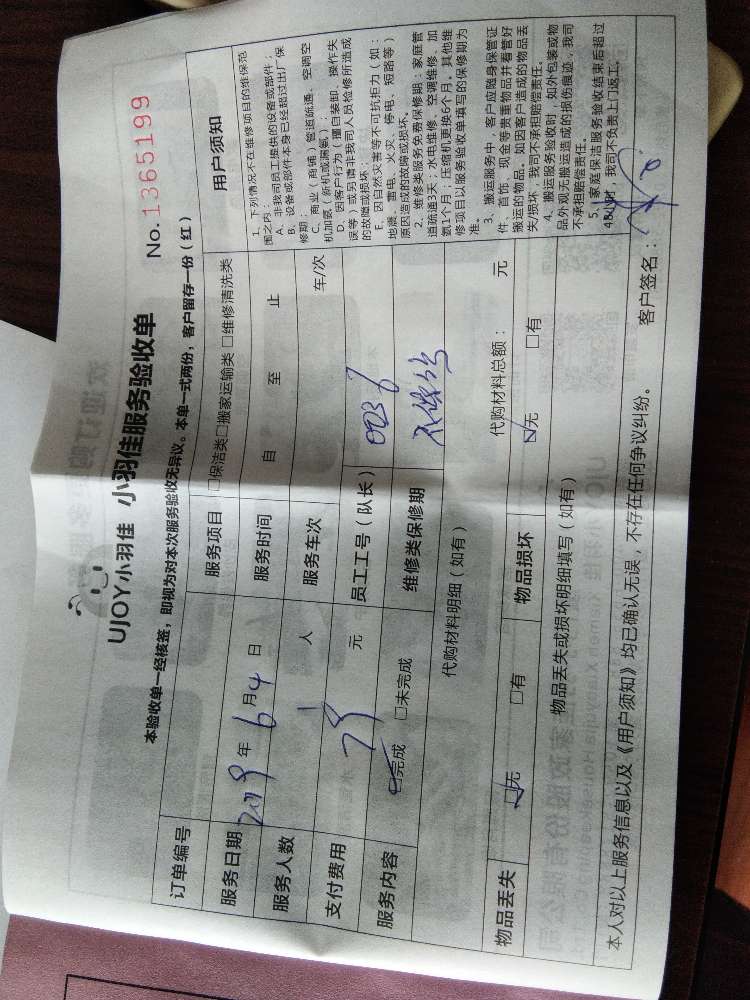 UJOY小羽佳 小羽佳服务验收单
No.1365199
本验收单一经核签，即视为对本次服务验收无异议。本单一式两份，客户留存一份（红）
订单编号
服务项目 □保洁类□搬家运输类□维修清洗类
服务日期 2019 年 6 月 4 日
服务时间 自 至 止
服务人数 1 人
服务车次 车/次
支付费用 元
员工工号（队长） 0236
服务内容 □完成 □未完成
维修类保修期
代购材料明细（如有）
代购材料总额： 元
物品丢失 □无 □有
物品损坏 □无 □有
物品丢失或损坏明细填写（如有）
用户须知
1、下列情况不在维修项目的维保范
围之内：
A、非我司员工提供的设备或部件；
B、设备或部件本身已经超过出厂保
修期；
C、商业（商铺）管道疏通、空调空
机加氨（新机或漏氨）；
D、因客户行为（擅自装卸、操作失
误等）或另请非我司人员检修所造成
的故障或损坏；
E、因自然灾害等不可抗拒力（如：
地震、雷电、火灾、停电、短路等）
原因造成的故障或损坏。
2、维修类服务免费保修期：家庭管
道疏通3天；水电维修、空调维修、加
氨1个月；压缩机更换6个月。其他维
修项目以服务验收单填写的保修期为
准。
3、搬运服务中，客户应随身保管证
件、首饰、现金等贵重物品并看管好
搬运的物品，如因客户造成的物品丢
失/损坏，我司不承担赔偿责任。
4、搬运服务验收时，如外包装或物
品外观无搬运造成的损伤痕迹，我司
不承担赔偿责任。
5、家庭保洁服务验收结束后超过
48小时，我司不负责上门返工。
本人对以上服务信息以及《用户须知》均已确认无误，不存在任何争议纠纷。 客户签名：